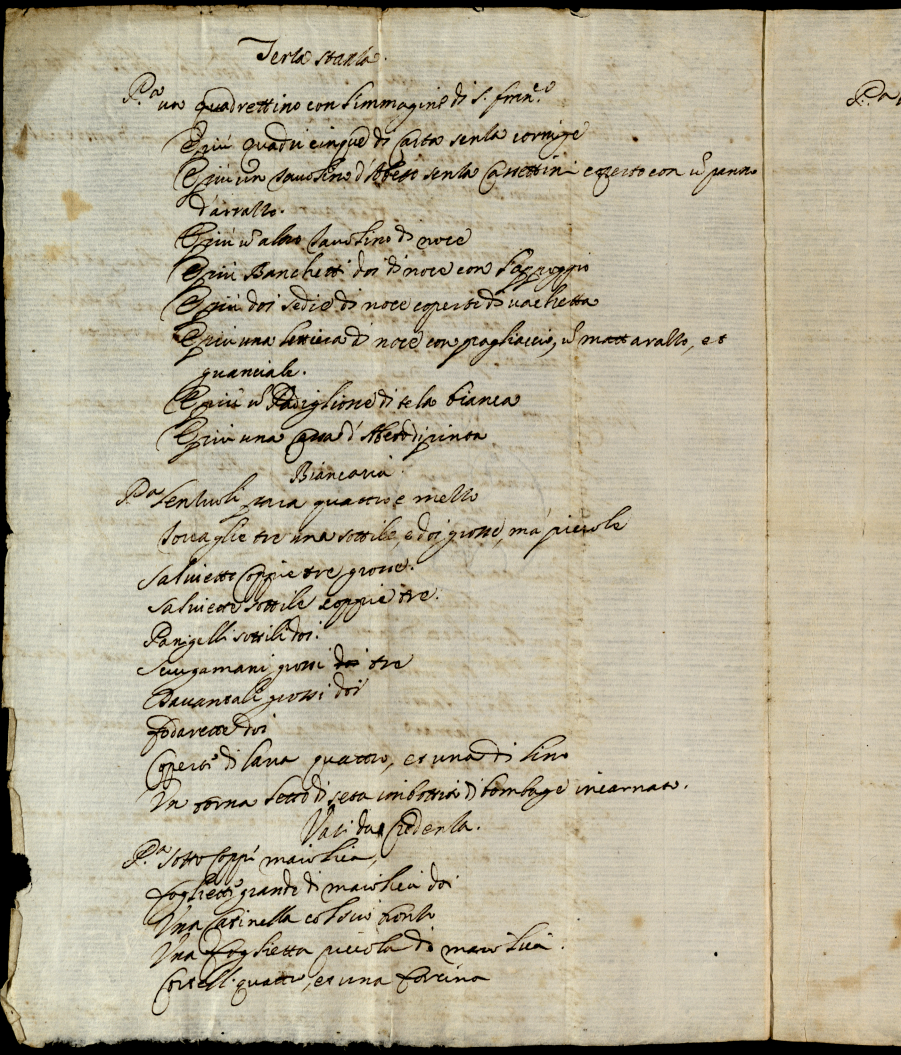 Terza stanza.
P.a un quadrettino con l'immagine di S. Fran.co
E più quadri cinque di carta senza cornige
E più un tavolino d'Abeto senza Cassettini coperto con ũ panno
d'arrazzo.
E più ũ altro tavolino di noce
E più Banchetti doi di noce con l'appoggio
E più doi sedie di noce coperte di vachetta
E più una lettiera di noce con pagliaccio, ũ mattarazzo, et
guanciale.
E più ũ Padiglione di tela bianca
E più una d'Abeto dipinta
Biancaria.
P.a Lenzuoli para quattro e mezzo
Tovaglie tre una sottile, e doi grosse, ma piccole
Salviette coppie tre grosse.
Salviette sottile coppie tre.
Panizelli sottili doi.
Sciugamani grossi doi tre
Davantali grossi doi
Fodarette doi
Coperte di lana quattro, et una di lino
Un torna letto di seta imbottita di bombage incarnata.
Vasi da Credenza.
P.a Sotto coppi maiolica,
Foglietti grandi di maiolica doi
Una Catinella col suo bronzo
Una Foglietta piccola di maiolica.
Cortelli quattro, et una forcina
P.a